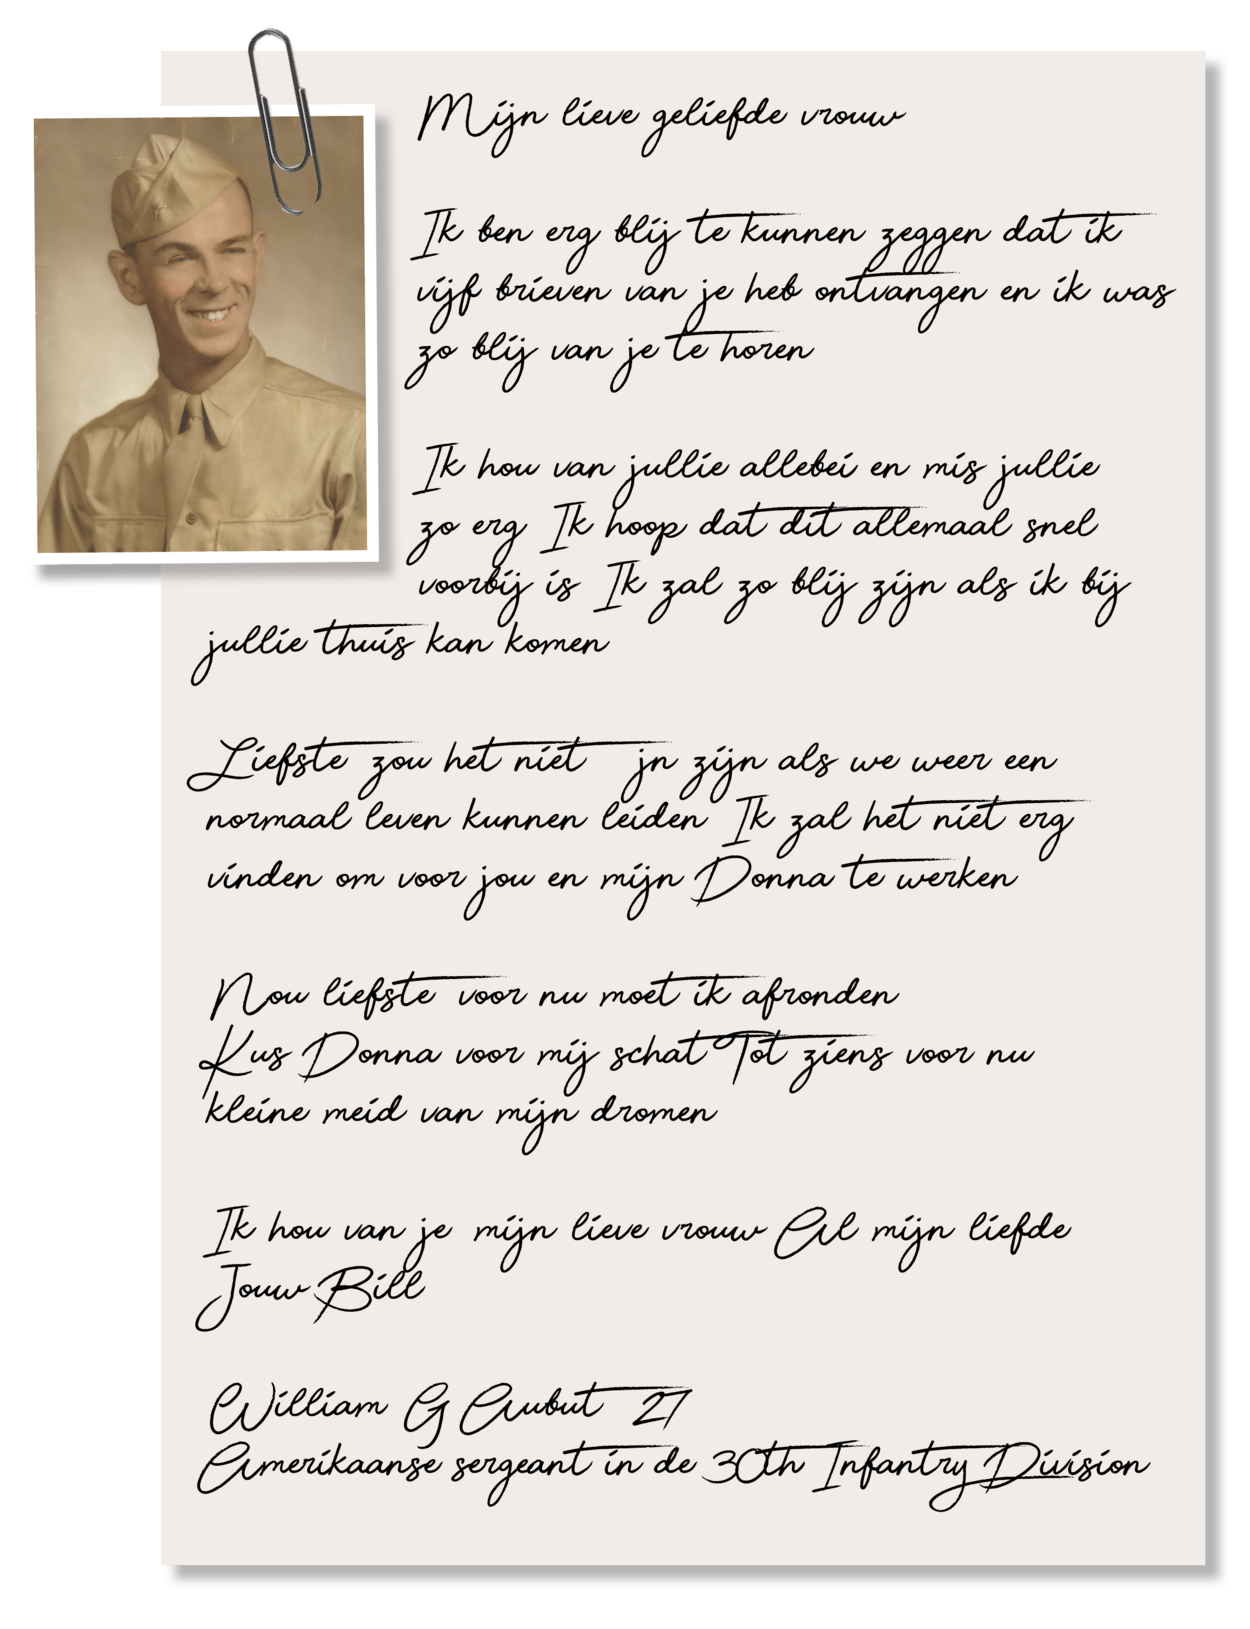 Mijn lieve geliefde vrouw
Ik ben erg blij te kunnen zeggen dat ik
vijf brieven van je heb ontvangen en ik was
zo blij van je te horen
Ik hou van jullie allebei en mis jullie
zo erg Ik hoop dat dit allemaal snel
voorbij is Ik zal zo blij zijn als ik bij
jullie thuis kan komen
Liefste zou het niet jn zijn als we weer een
normaal leven kunnen leiden Ik zal het niet erg
vinden om voor jou en mijn Donna te werken
Nou liefste voor nu moet ik afronden
Kus Donna voor mij schat Tot ziens voor nu
kleine meid van mijn dromen
Ik hou van je mijn lieve vrouw Al mijn liefde
Jouw Bill
William G Aubut 27
Amerikaanse sergeant in de 30th Infantry Division